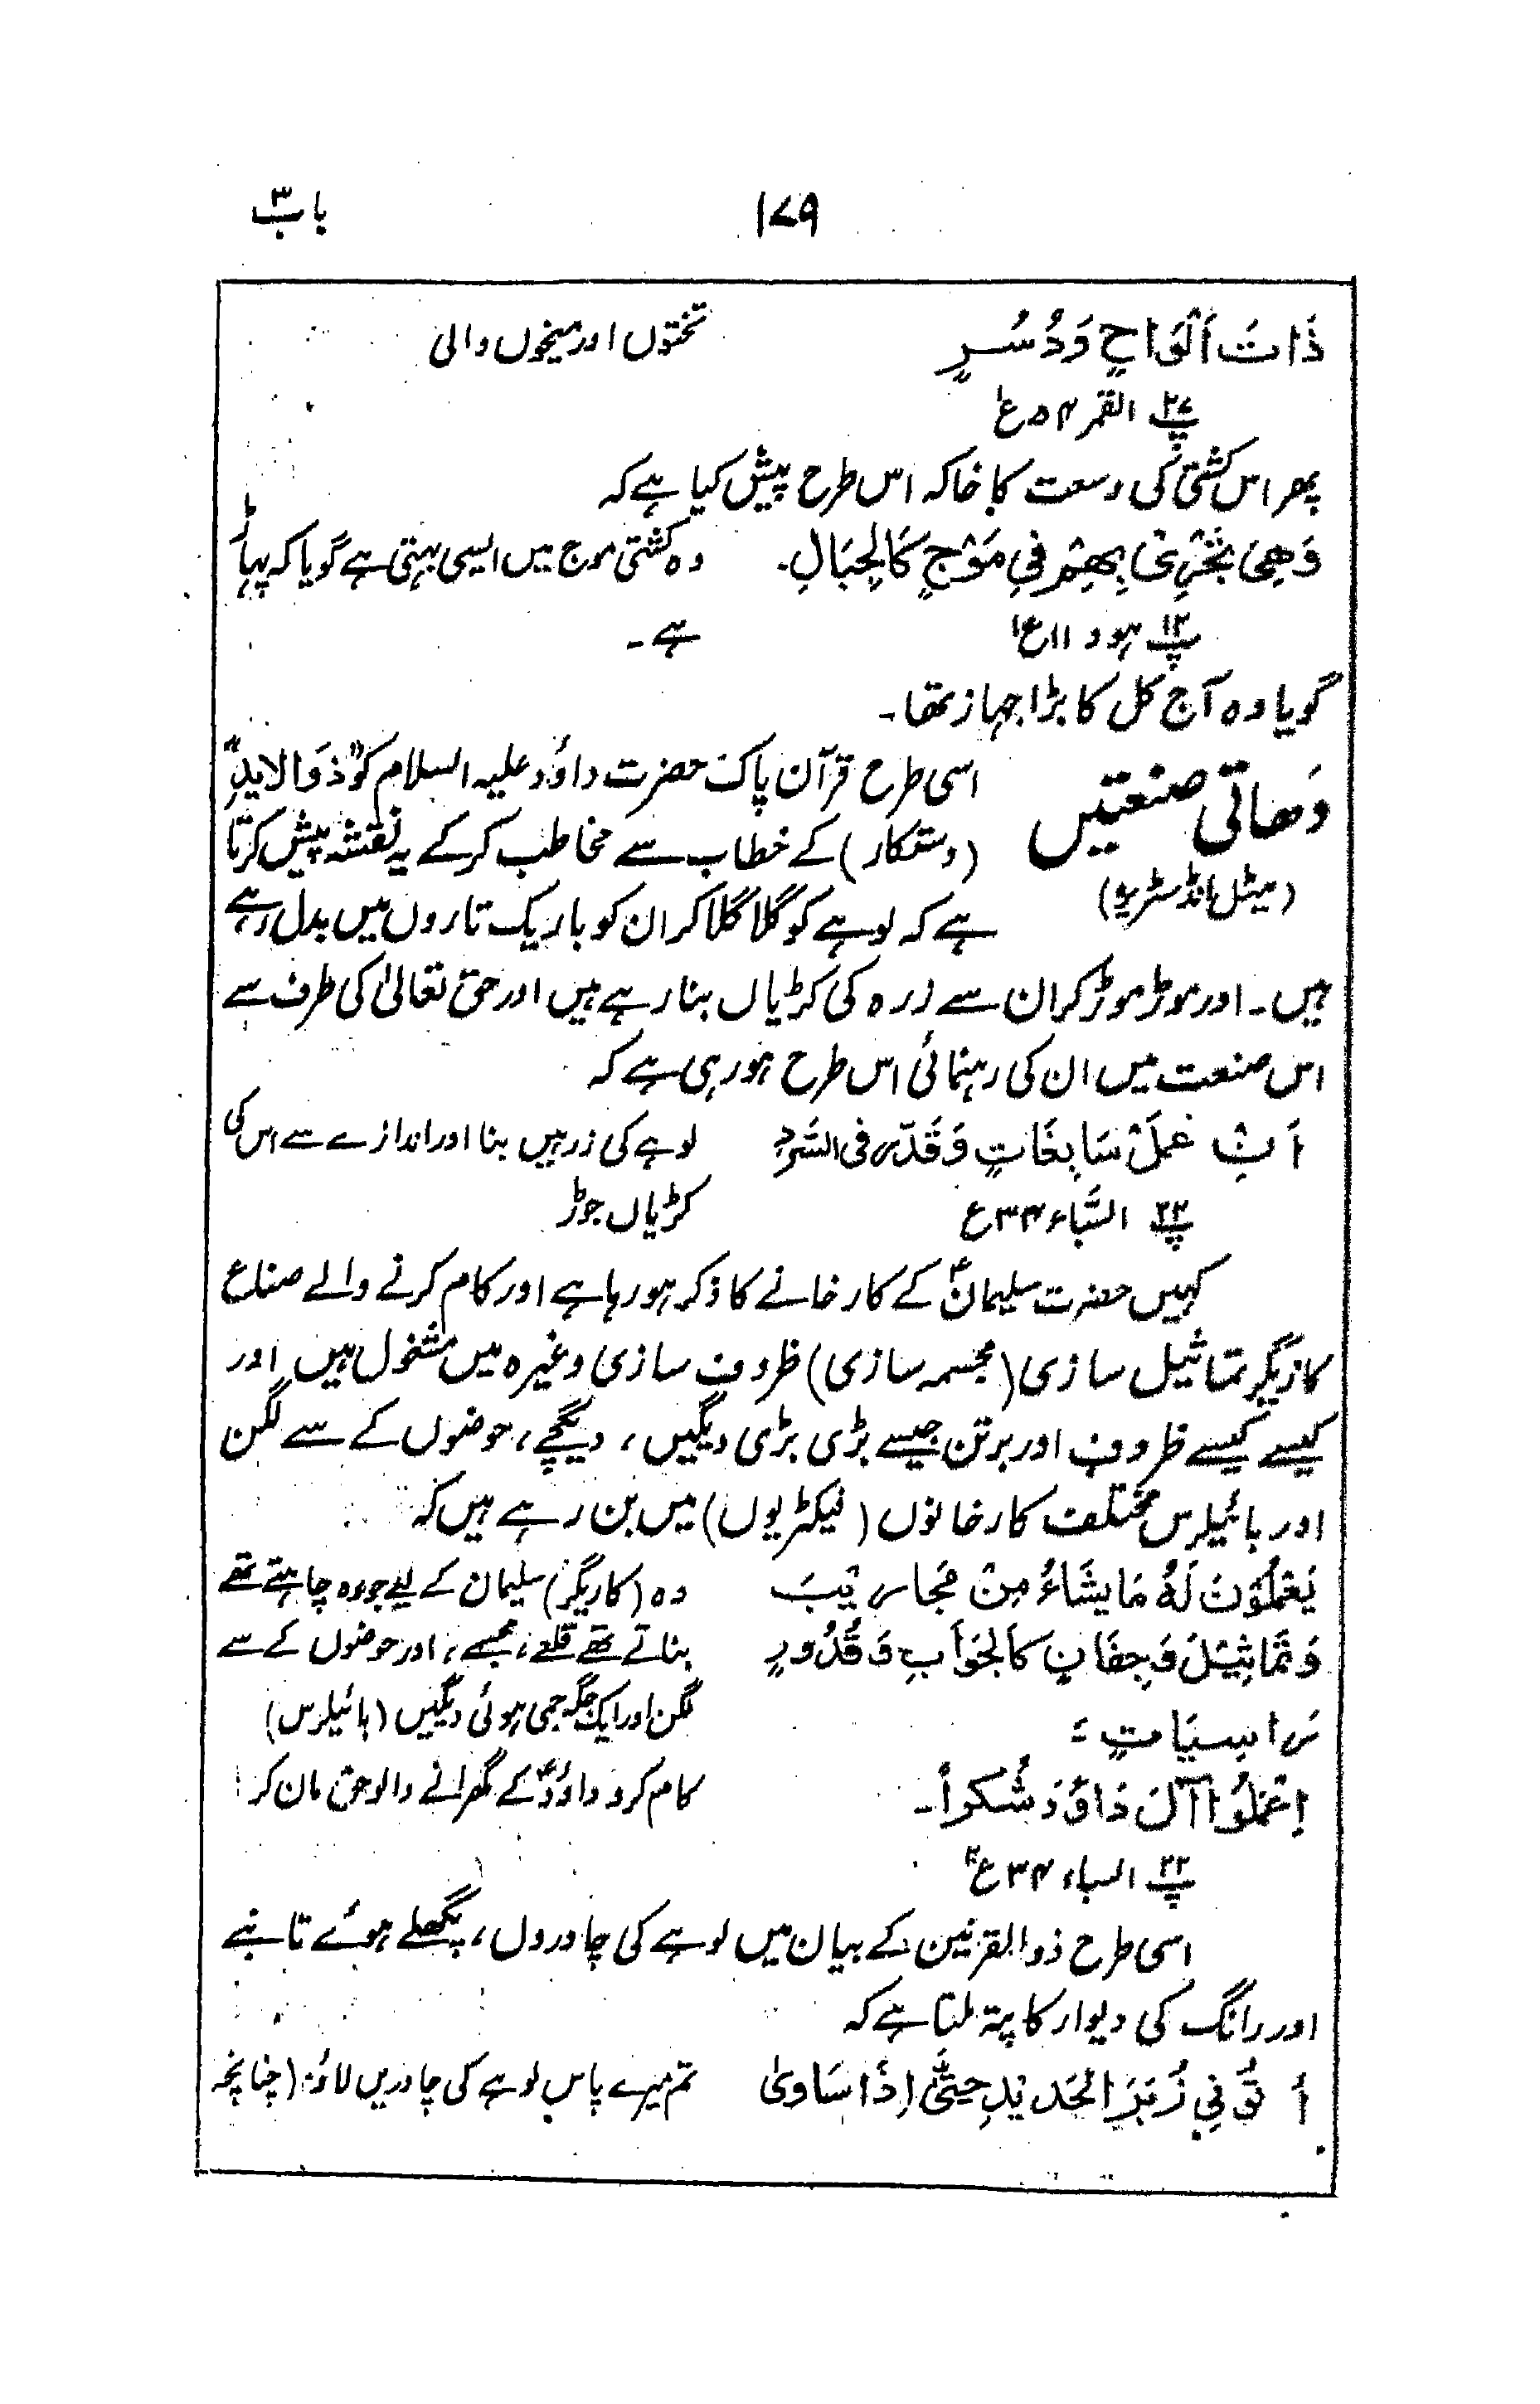 باب ۳
۱۷۹
ذَاتَ اَلْوَاحٍ وَدُسُرٍ
تختوں اور میخوں والی
پ ۲۷ القمر ۵۴ ع ۱
پھر اس کشتی کی وسعت کا خاکہ اس طرح پیش کیا ہے کہ
وَهِیَ تَجْرِیْ بِهِمْ فِیْ مَوْجٍ كَالْجِبَالِ۔
وہ کشتی موج میں ایسی بہتی ہے گویا کہ پہاڑ
پ ۱۲ ہود ۱۱ ع
ہے۔
گویا وہ آج کل کا بڑا جہاز تھا۔
دھاتی صنعتیں
(میٹل انڈسٹریز)
اسی طرح قرآن پاک حضرت داؤد علیہ السلام کو "ذَوَالاید"
(دستکار) کے خطاب سے مخاطب کرکے یہ نقشہ پیش کرتا
ہے کہ لوہے کو گلا گلا کر ان کو باریک تاروں میں بدل رہے
ہیں۔ اور موڑ موڑ کر ان سے زرہ کی کڑیاں بنا رہے ہیں اور حق تعالیٰ کی طرف سے
اس صنعت میں ان کی رہنمائی اس طرح ہو رہی ہے کہ
اَنِ عْمَلْ سَابِغَاتٍ وَقَدِّرْ فی السَّرْدِ
لوہے کی زرہیں بنا اور اندازے سے اس کی
پ ۲۲ السَّباء ۳۴ ع
کڑیاں جوڑ
کہیں حضرت سلیمانؑ کے کارخانے کا ذکر ہو رہا ہے اور کام کرنے والے صناع
کاریگر تماثیل سازی (مجسمہ سازی) ظروف سازی وغیرہ میں مشغول ہیں اور
کیسے کیسے ظروف اور برتن جیسے بڑی بڑی دیگیں، دیگچے، حوضوں کے سے لگن
اور بائیلرس مختلف کارخانوں (فیکٹریوں) میں بن رہے ہیں کہ
یَعْمَلُوْنَ لَهٗ مَا یَشَاءُ مِنْ مَّحَارِیْبَ
وہ (کاریگر) سلیمان کے لیے جو وہ چاہتے تھے
وَتَمَاثِیْلَ وَجِفَانٍ كَالْجَوَابِ وَقُدُوْرٍ
بناتے تھے قلعے، مجسمے، اور حوضوں کے سے
رَاسِیَاتٍ
لگن اور ایک جگہ جمی ہوئی دیگیں (بائیلرس)
اِعْمَلُوْا آلَ دَاوٗدَ شُكْراً۔
کام کرو داؤدؑ کے گھرانے والو حق مان کر
پ ۲۲ السباء ۳۴ ع ۲
اسی طرح ذوالقرنین کے بیان میں لوہے کی چادروں، پگھلے ہوئے تانبے
اور رانگ کی دیوار کا پتہ ملتا ہے کہ
أ تُوْنِی زُبَرَ الْحَدِیْدِ حَتّٰی اِذَا سَاوٰی
تم میرے پاس لوہے کی چادریں لاؤ (چنانچہ